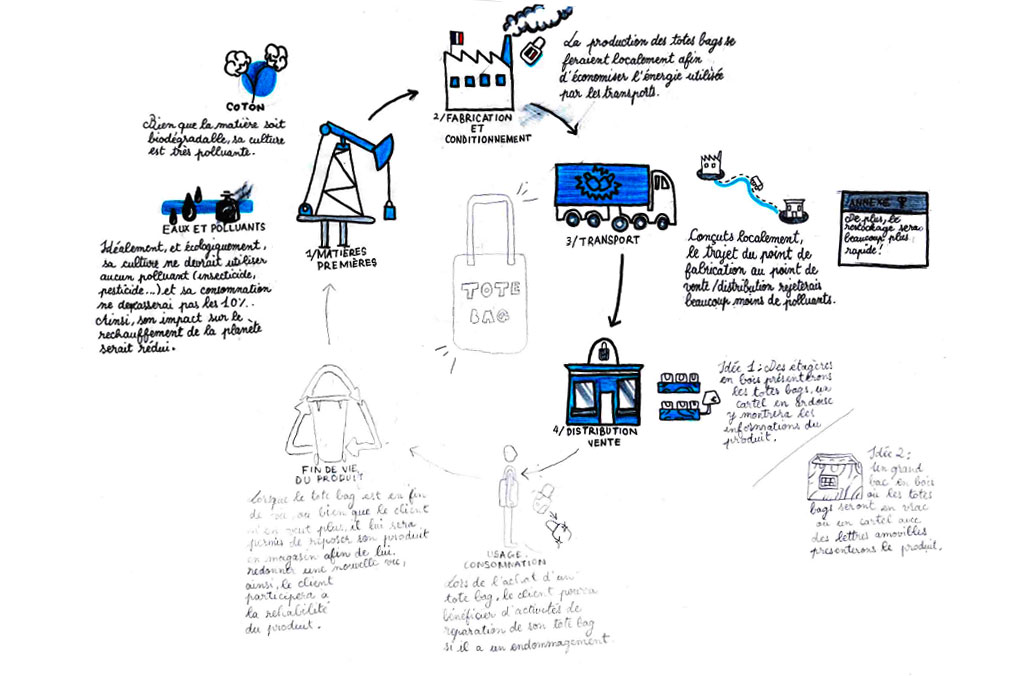 COTON
Bien que la matière soit
biodégradable, sa culture
est très polluante.
EAUX ET POLLUANTS
Idéalement, et écologiquement,
sa culture ne devrait utiliser
aucun polluant (insecticide,
pesticide...) et sa consommation
ne depasserai pas les 10%.
Ainsi, son impact sur le
rechauffement de la planète
serait rédui.
1/MATIÈRES
PREMIÈRES
2/FABRICATION
ET
CONDITIONNEMENT
La production des totes bags se
feraient localement afin
d'économiser l'énergie utilisée
par les transports.
3/TRANSPORT
Conçuts localement,
le trajet du point de
fabrication au point de
vente/distribution rejeterais
beaucoup moins de polluants.
ANNEXE
De plus, le
restockage sera
beaucoup plus
rapide!
TOTE
BAG
4/DISTRIBUTION
VENTE
Idée 1: Des étagères
en bois présenterons
les totes bags, un
cartel en ardoise
y montrera les
informations du
produit.
Idée 2:
Un grand
bac en bois
où les totes
bags seront en vrac
où un cartel avec
des lettres amovibles
presenterons le produit.
USAGE,
CONSOMNATION
Lors de l'achat d'un
tote bag, le client pourra
bénéficier d'activités de
reparation de son tote bag
si il a un endommagement.
FIN DE VIE
DU PRODUIT
Lorsque le tote bag est en fin
de vie, ou bien que le client
n'en veut plus, il lui sera
permis de réposer son produit
en magasin afin de lui
redonner une nouvelle vie,
ainsi, le client
participera à
la rehabilité
du produit.